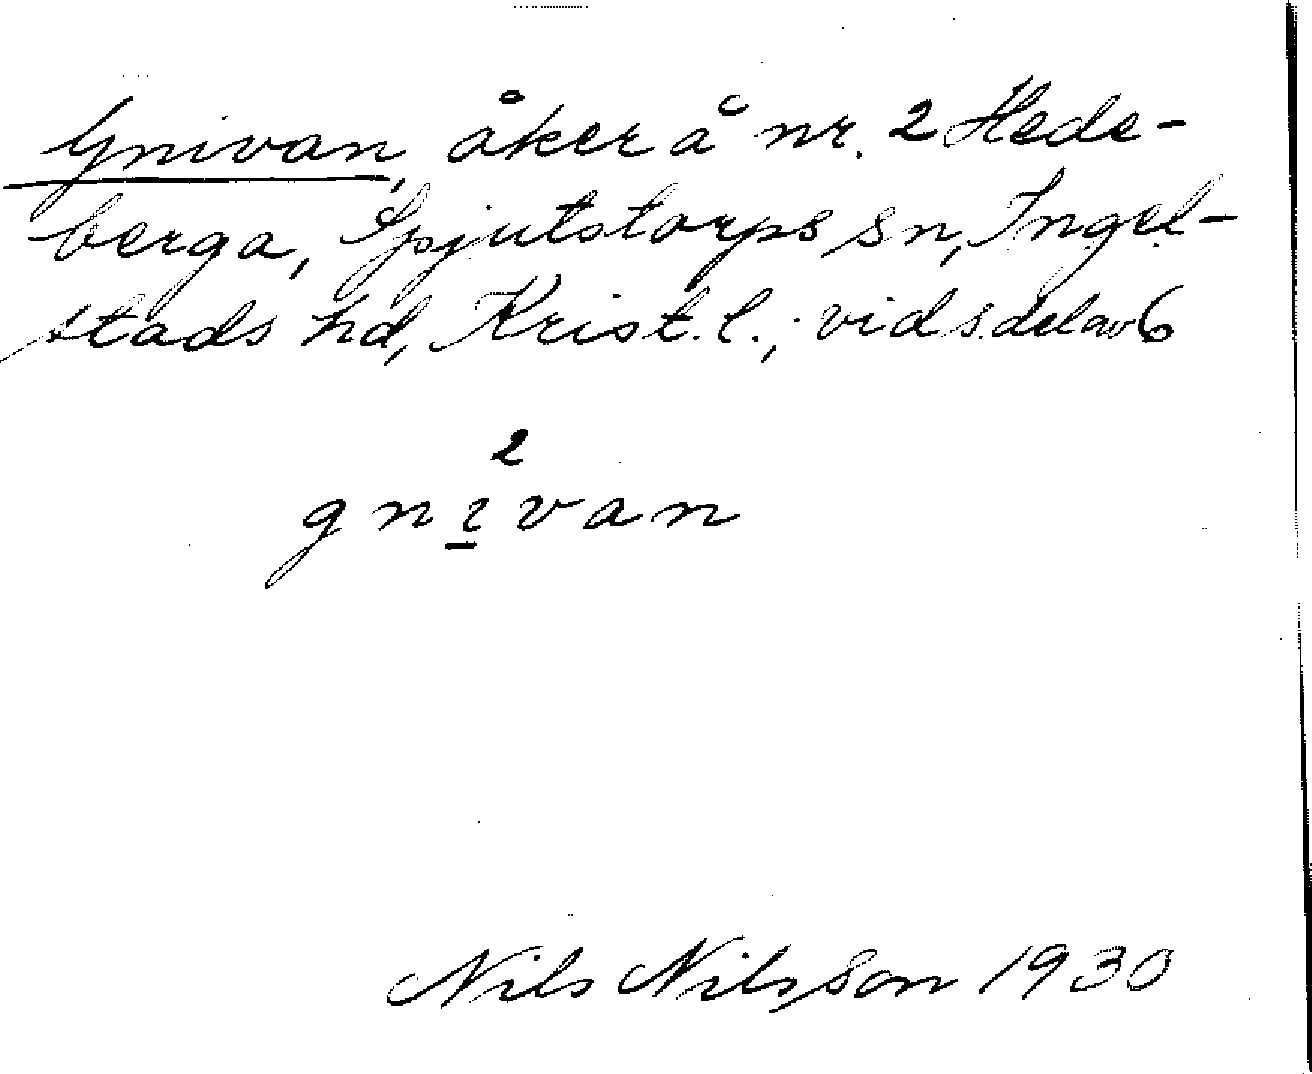 Gnivan, åker å nr. 2 Hede-
berga, Spjutstorps sn, Ingel-
stads hd, Krist. l.; vid s. del av 6
2
gnivan
Nils Nilsson 1930